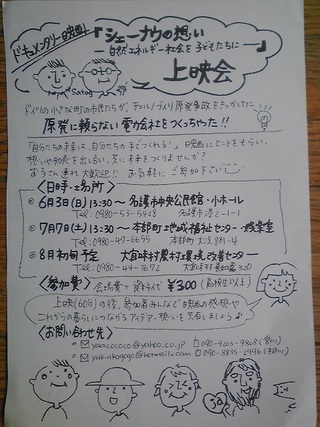 ドキュメンタリー映画!
「シェーナウの想い
ー自然エネルギー社会を子どもたちにー」
上映会
ドイツの小さな町の市民たちが、チェルノブイリ原発事故をきっかけに
原発に頼らない電力会社をつくっちゃった!!
「自分たちの未来は、自分たちの手でつくれる!」映画にヒントをもらい、
想いや知恵を出し合い、共に未来をつくりませんか?
お子さん連れ大歓迎!! お気軽にご参加下さい
<日時・場所>
6月3日(日)13:30〜 名護市中央公民館・小ホール
Tel:0980-53-5428 名護市港2-1-1
7月7日(土)13:30〜 本部町地域福祉センター
Tel:0980-47-6655 本部町大浜881-4
8月初旬予定 大宜味村農村環境改善センター
Tel:0980-44-3672
<参加費> 会場費+資料代 ¥300(高校生以上)
上映(60分)の後、参加者みんなで映画の感想や
これからの暮らしにつながるアイデア・想いを共有しましょう♪
<お問い合わせ先>